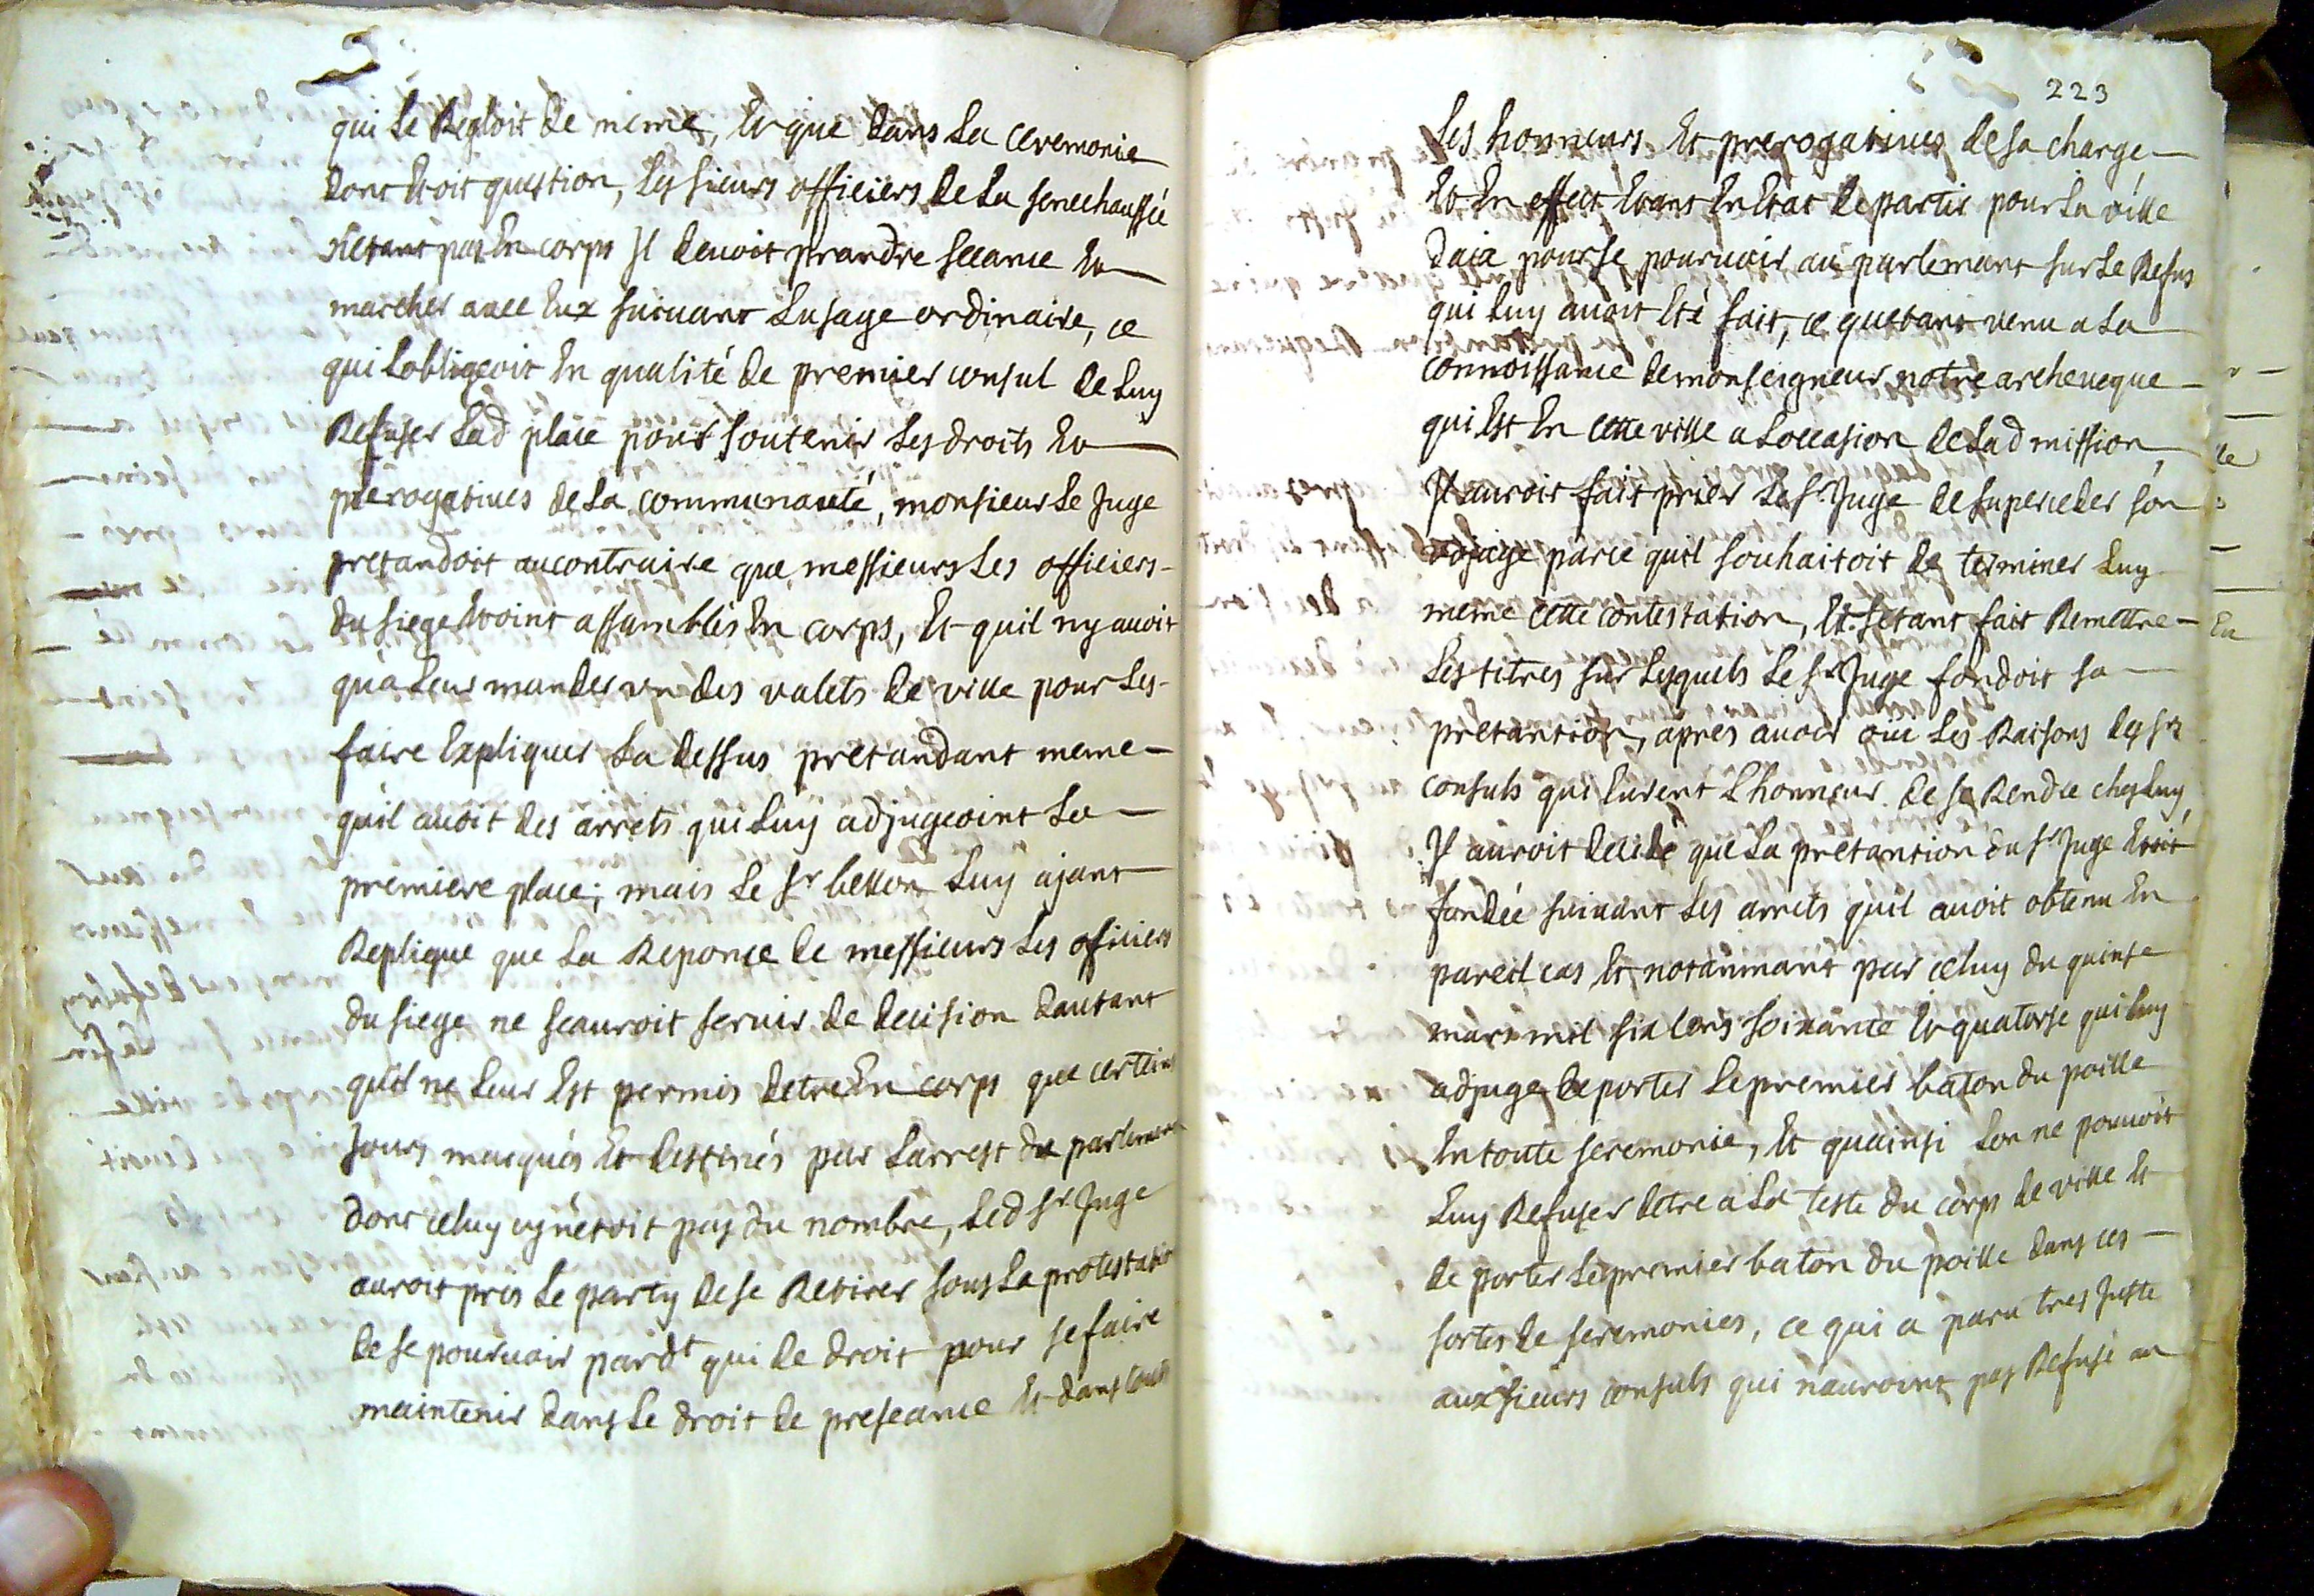 qui Se Regloit de meme, Et que dans La ceremonie
dont Etoit question, Les sieurs officiers de La senechaussée
n'etant pas En corps Il devoit prandre sceance Et
marcher avec Eux suivant Lusage ordinaire, ce
qui Lobligeoit En qualité de premier consul de Luy
Refuser Lad place pour soutenir Les droits Et
prerogatives de La communauté, monsieur Le Juge
pretandoit aucontraire que messieurs Les officiers
du siege Etoint assamblés En corps, Et quil ny avoit
qu'a Leur mander un des valets de ville pour Les
faire Expliquer La dessus pretandant meme
quil avoit des arrets qui Luy adjugeoint La
premiere place; mais Le Sr bellon Luy ajant
Replique que La Reponce de messieurs Les officiers
du siege ne scauroit servir de decision dautant
quil ne Leur Est permis detre En corps que certeins
Jours marqués Et destinés par Larrest du parlement
dont celuy cy n'etoit pas du nombre, Led Sr Juge
auroit pris Le party de se Retirer sous La protestation
de se pourvoir pardt qui de droit pour se faire
maintenir dans Le droit de preseance Et dans tous
223
Les honneurs Et prerogatives de sa charge
Et En effect Etant En Etat de partir pour La ville
daix pour se pourvoir au parlemant sur Le Refus
qui Luy avoit Eté fait, ce quetant venu a La
connoissance de monseigneur notre archeveque
qui Est En cette ville a Loccasion de Lad mission,
Il auroit fait prier Le Sr Juge de superceder son
vojage parce quil souhaitoit de terminer Luy
meme cette contestation, Et setant fait Remettre
Les titres sur Lesquels Le Sr Juge fondoit sa
pretantion, apres avoir oui Les Raisons des Srs
consuls qui Eurent L'honneur de se Rendre ches Luy,
Il auroit decidé que La pretantion du Sr Juge Etoit
fondée suivant Les arrets quil avoit obtenu En
pareil cas Et notanmant par celuy du quinse
mars mil six cens soixante Et quatorse qui Luy
adjuge de porter Le premier baton du poille
En toute seremonie, Et quainsi Lon ne pouvoit
Luy Refuser detre a La teste du corps de ville Et
de porter Le premier baton du poille dans ces
sortes de seremonies, ce qui a paru tres Juste
aux sieurs consuls qui n'auroint pas Refusé au